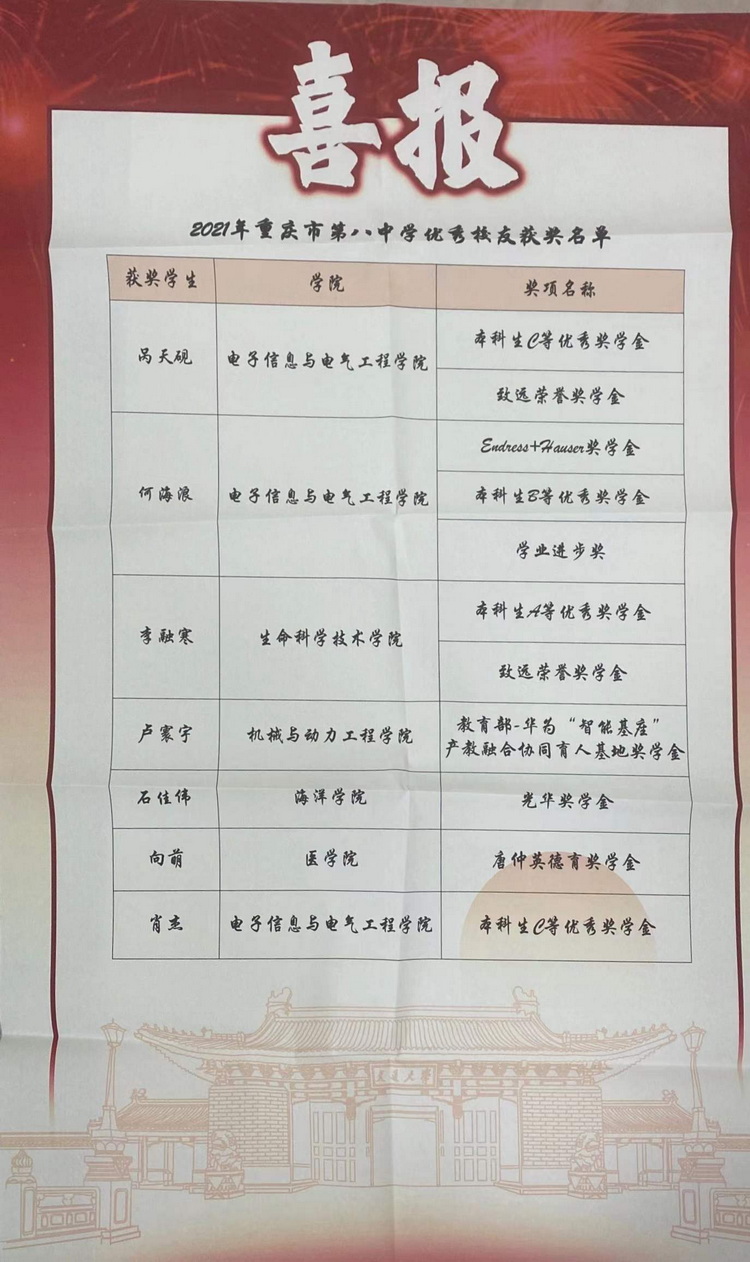 喜报
2021年重庆市第八中学优秀校友获奖名单
获奖学生 学院 奖项名称
呙天砚 电子信息与电气工程学院 本科生C等优秀奖学金
致远荣誉奖学金
何海浪 电子信息与电气工程学院 Endress+Hauser奖学金
本科生B等优秀奖学金
学业进步奖
李融寒 生命科学技术学院 本科生A等优秀奖学金
致远荣誉奖学金
卢寰宇 机械与动力工程学院 教育部-华为“智能基座”
产教融合协同育人基地奖学金
石佳伟 海洋学院 光华奖学金
向萌 医学院 唐仲英德育奖学金
肖杰 电子信息与电气工程学院 本科生C等优秀奖学金
交通大学